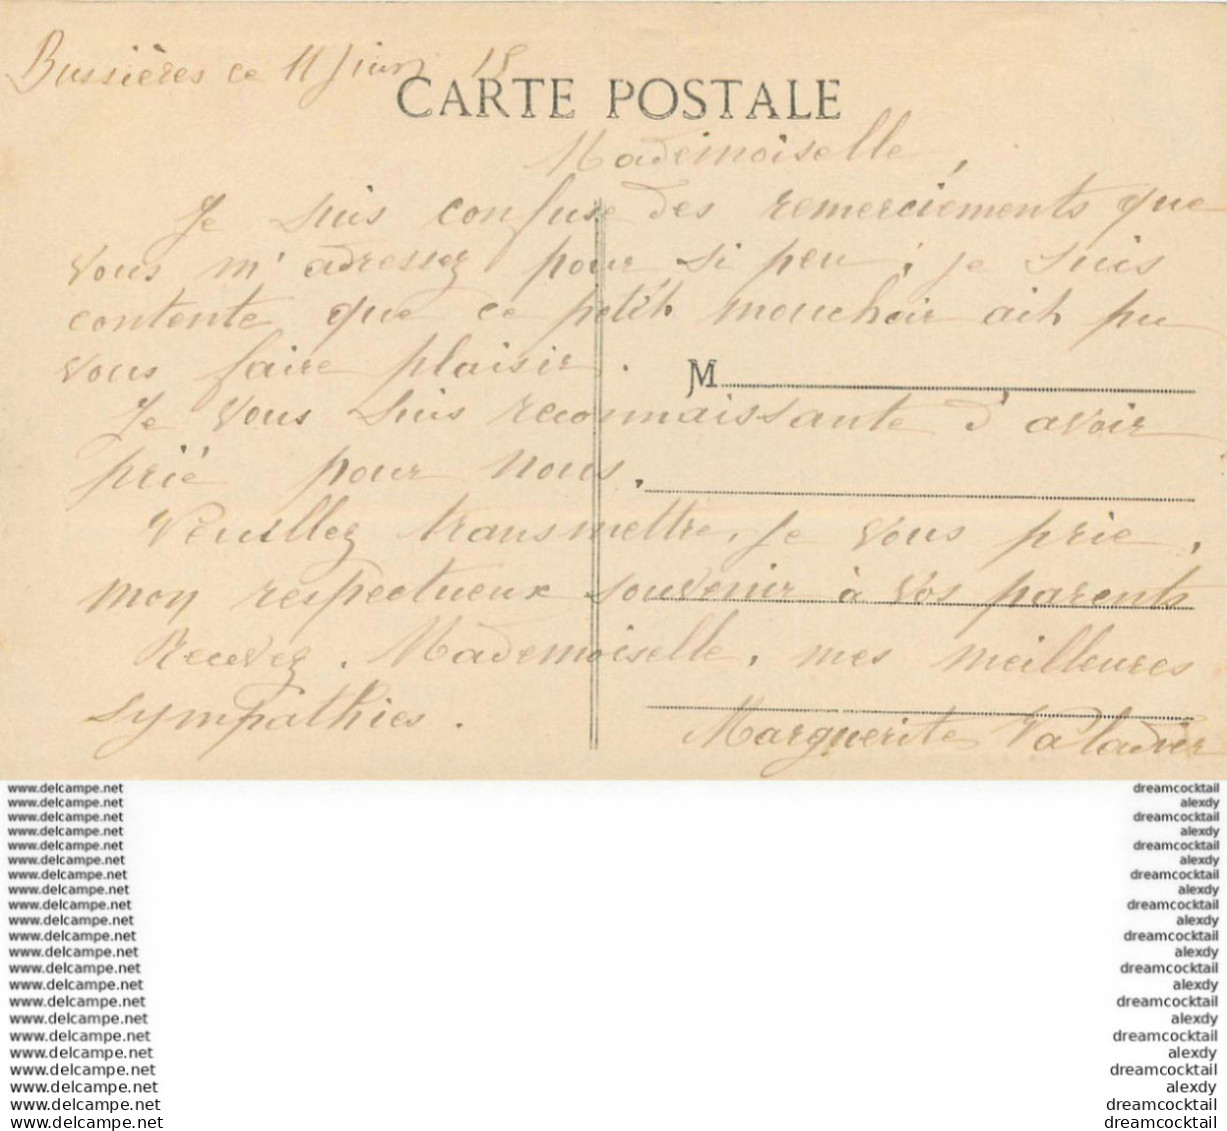 Bussières ce 11 Juin 15
CARTE POSTALE
Mademoiselle,
Je suis confuse des remerciements que
vous m'adressez pour si peu ; je suis
contente que ce petit mouchoir ait pu
vous faire plaisir.
M
Je vous suis reconnaissante d'avoir
prié pour nous.
Veuillez transmettre, je vous prie,
mon respectueux souvenir à vos parents
Recevez, Mademoiselle, mes meilleures
sympathies.
Marguerite
www.delcampe.net dreamcocktail
www.delcampe.net alexdy
www.delcampe.net dreamcocktail
www.delcampe.net alexdy
www.delcampe.net dreamcocktail
www.delcampe.net alexdy
www.delcampe.net dreamcocktail
www.delcampe.net alexdy
www.delcampe.net dreamcocktail
www.delcampe.net alexdy
www.delcampe.net dreamcocktail
www.delcampe.net alexdy
www.delcampe.net dreamcocktail
www.delcampe.net alexdy
www.delcampe.net dreamcocktail
www.delcampe.net alexdy
www.delcampe.net dreamcocktail
www.delcampe.net alexdy
www.delcampe.net dreamcocktail
www.delcampe.net alexdy
www.delcampe.net dreamcocktail
www.delcampe.net dreamcocktail